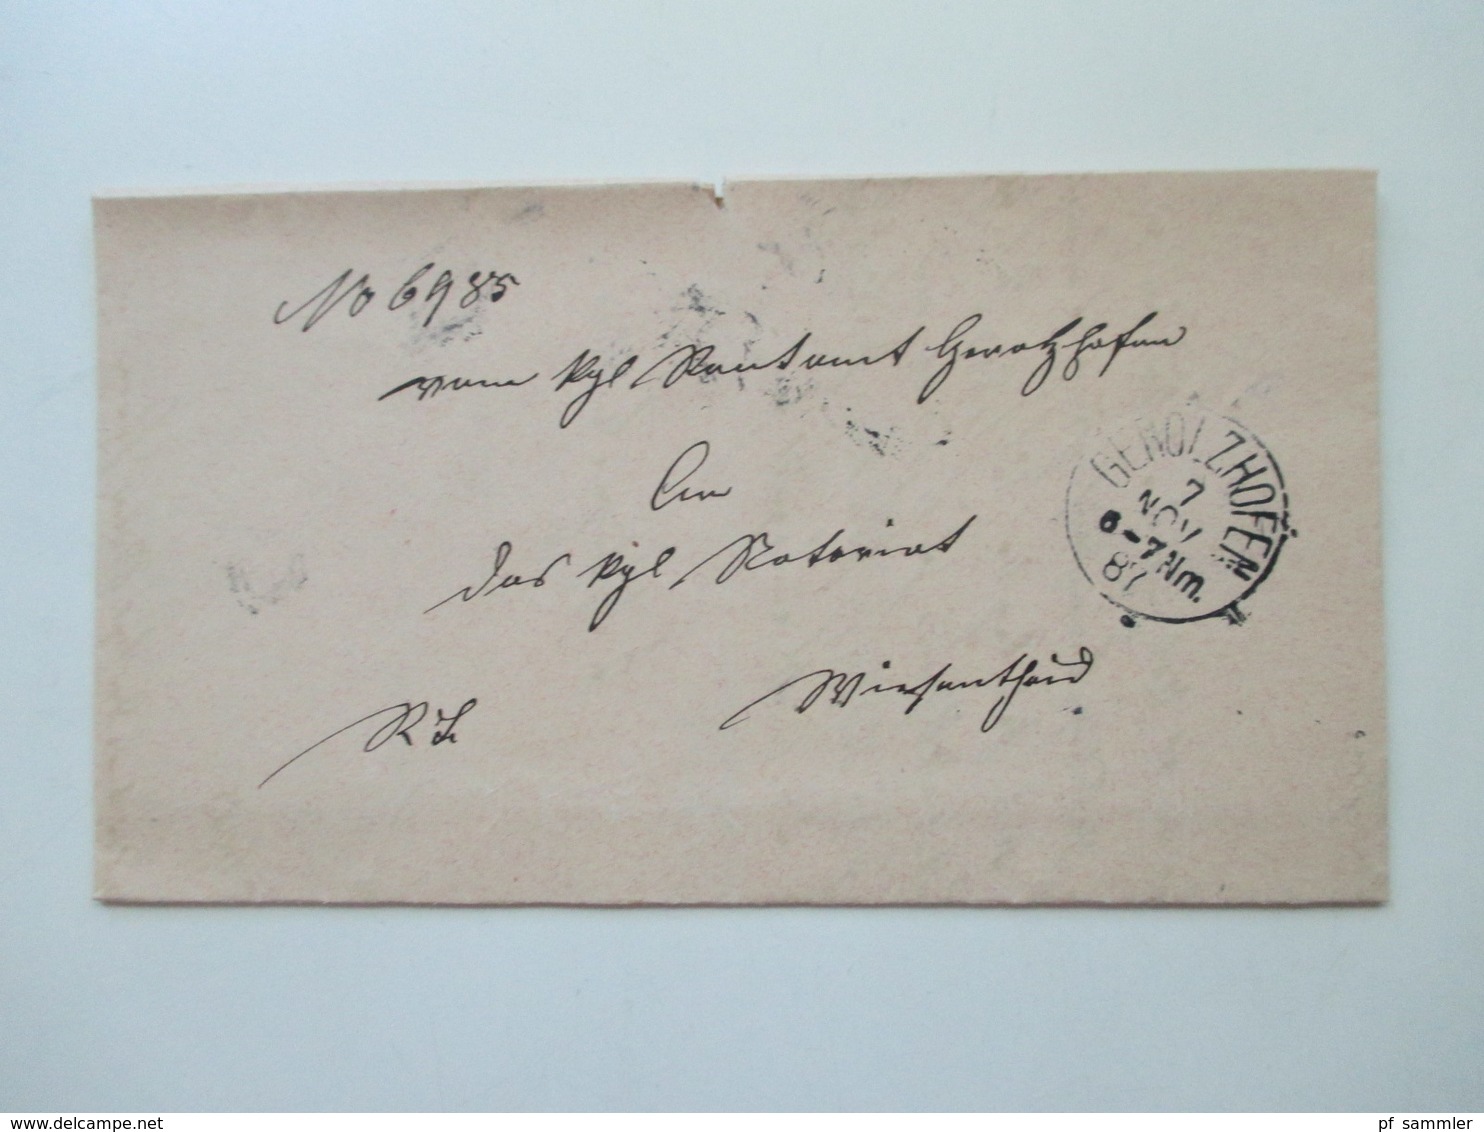 No 6985
vom kgl Rentamt Gerolzhofen
An
das kgl Notariat
Wiesentheid
R. S.
GEROLZHOFEN
7
NOV
6-7 Nm.
87
www.delcampe.net
pf_sammler